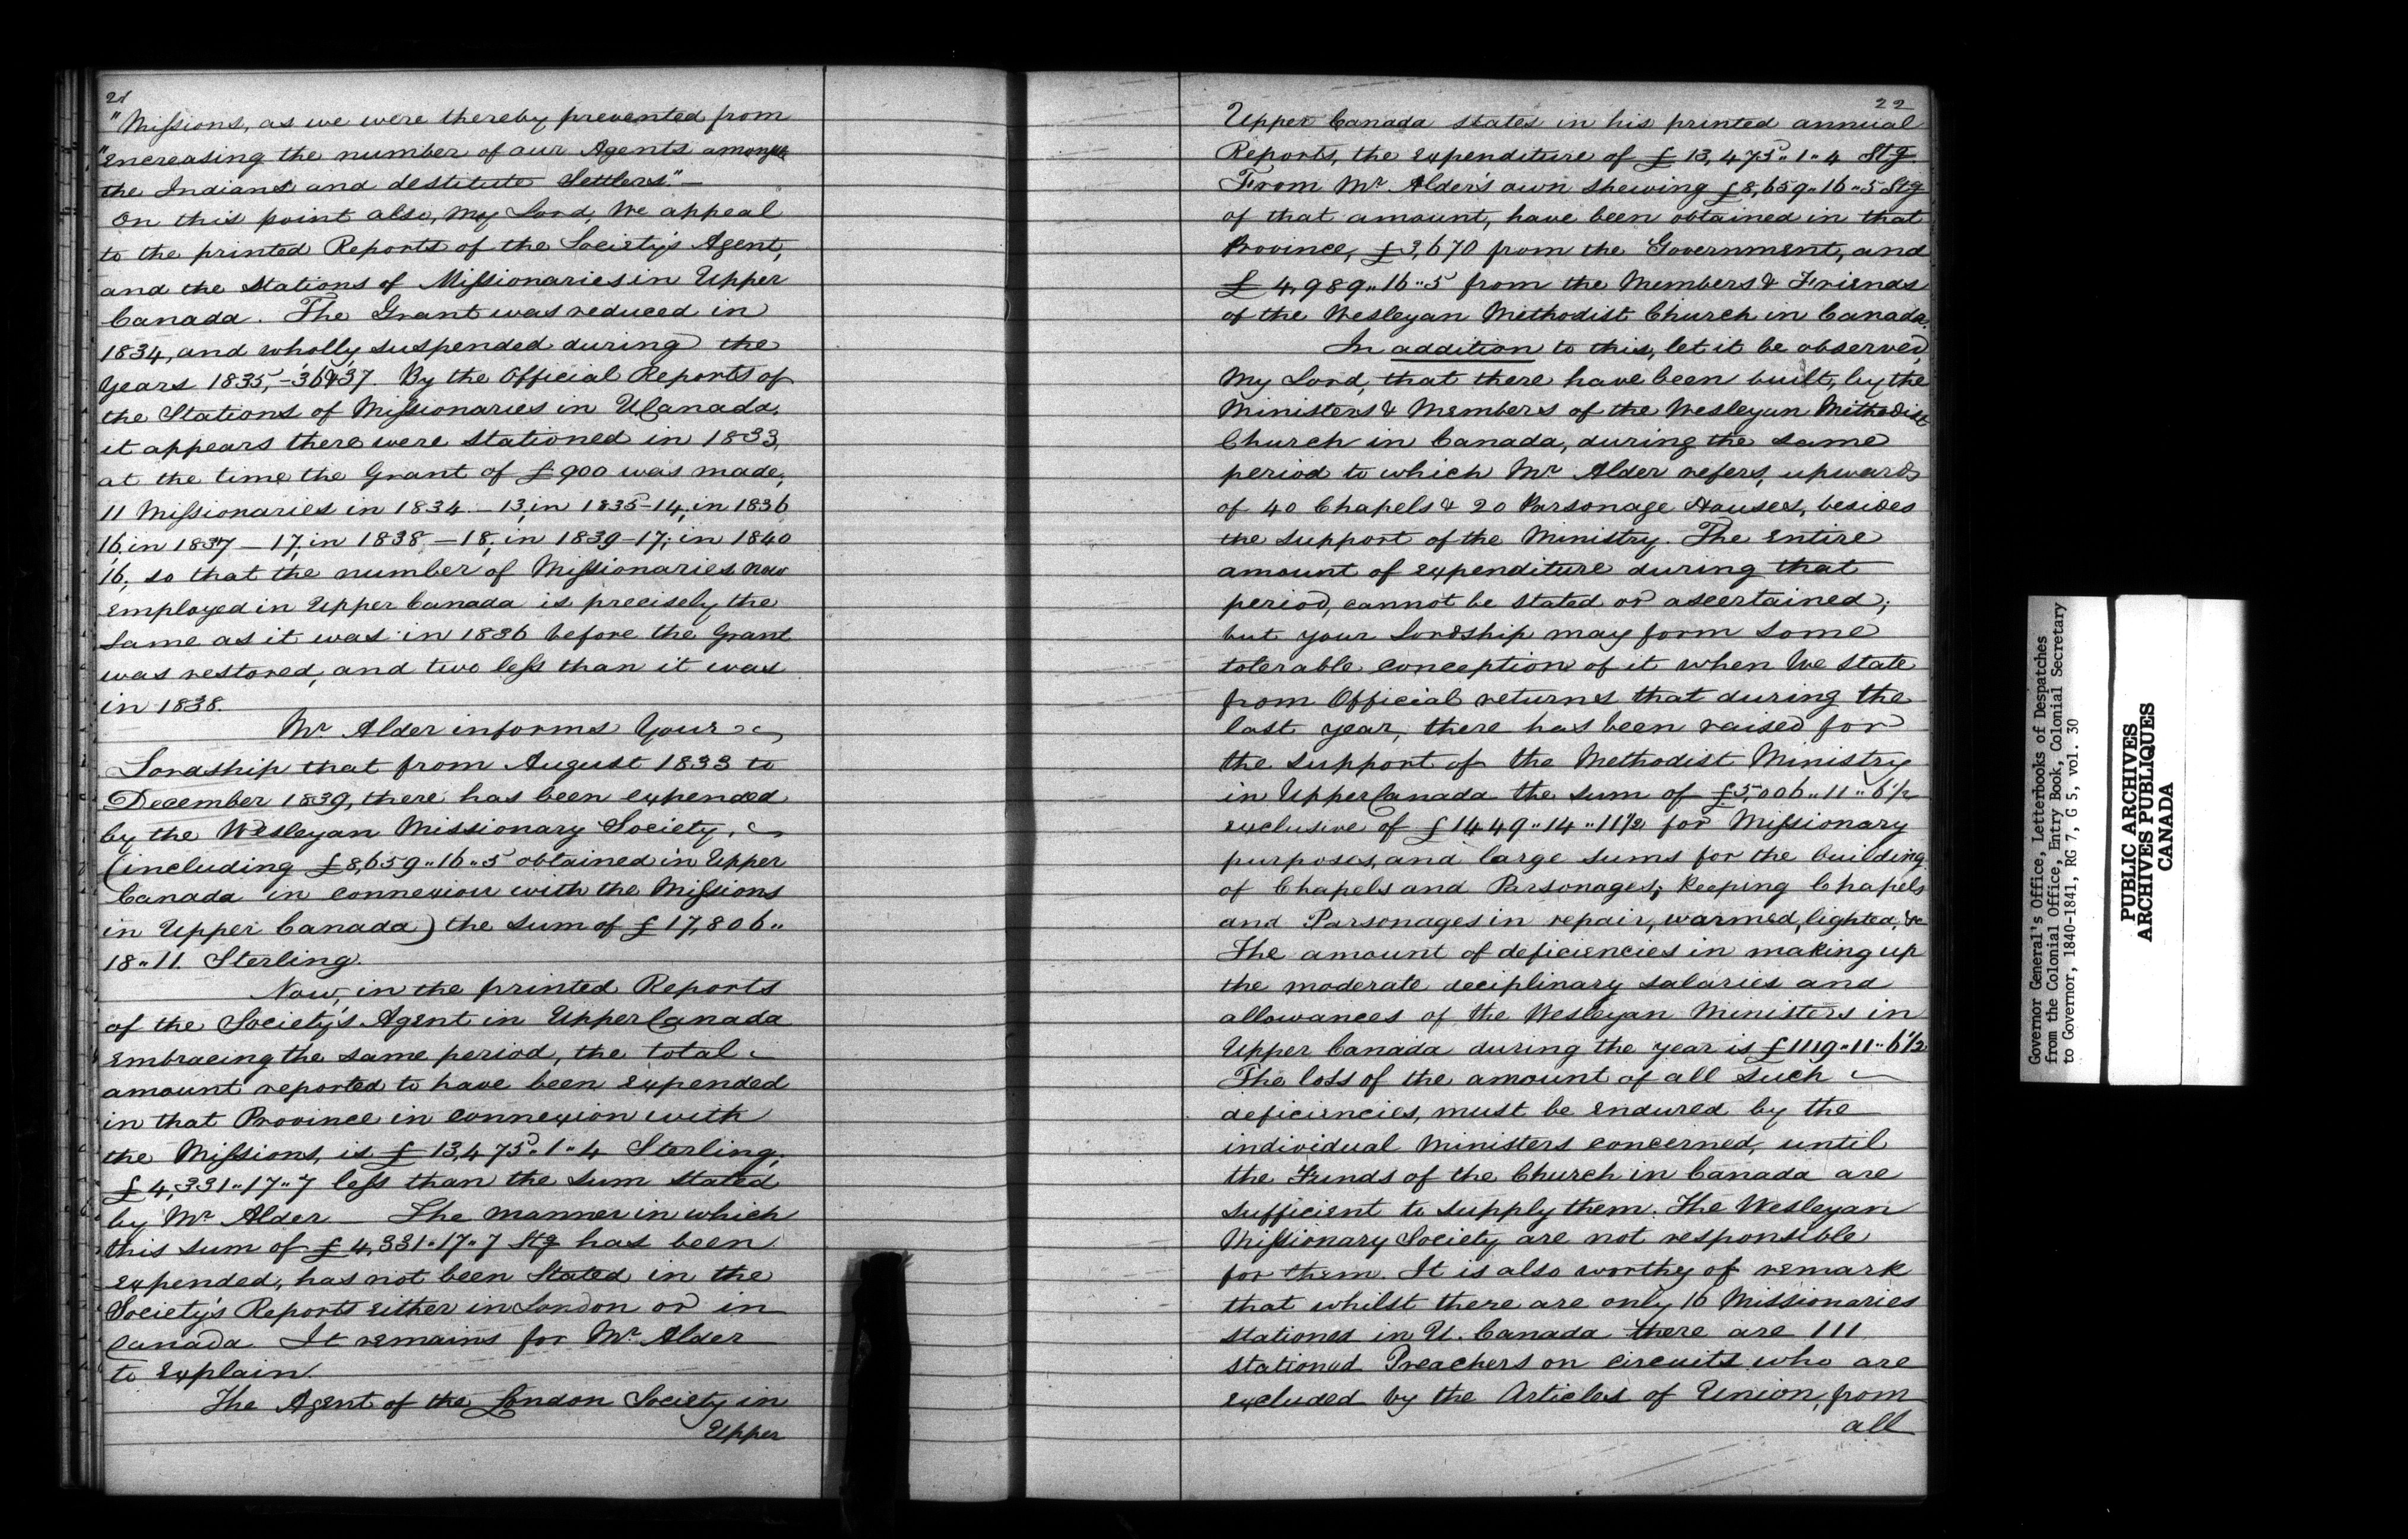 21
"Missions, as we were thereby prevented from
"encreasing the number of our Agents amongst
the Indians and destitute Settlers."—
On this point also, My Lord, We appeal
to the printed Reports of the Society's Agent,
and the Stations of Missionaries in Upper
Canada. The Grant was reduced in
1834, and wholly suspended during the
Years 1835,-36&37. By the Official Reports of
the Stations of Missionaries in U Canada,
it appears there were stationed in 1833,
at the time the Grant of £900 was made,
11 Missionaries in 1834.–13, in 1835–14, in 1836
16, in 1837–17, in 1838.–18, in 1839–17, in 1840
16, so that the number of Missionaries now
employed in Upper Canada is precisely the
same as it was in 1836 before the Grant
was restored, and two less than it was
in 1838.
Mr Alder informs Your
Lordship that from August 1833 to
December 1839, there has been expended
by the Wesleyan Missionary Society,
(including £8,659"16"5 obtained in Upper
Canada in connexion with the Missions
in Upper Canada) the sum of £17,806"
18"11. Sterling.
Now, in the printed Reports
of the Society's Agent in Upper Canada
embracing the same period, the total
amount reported to have been expended
in that Province in connexion with
the Missions, is £13,475"1"4 Sterling,
£4,331"17"7 less than the sum stated
by Mr Alder — The manner in which
this sum of £4,331"17"7 Stg has been
expended, has not been Stated in the
Society's Reports either in London or in
Canada. It remains for Mr Alder
to explain.
The Agent of the London Society in
Upper
22
Upper Canada states in his printed annual
Reports, the expenditure of £13,475"1"4 Stg
From Mr Alder's own shewing £8,659"16"5 Stg
of that amount, have been obtained in that
Province, £3,670 from the Government, and
£4,989"16"5 from the Members & Friends
of the Wesleyan Methodist Church in Canada.
In addition to this, let it be observed,
My Lord, that there have been built, by the
Ministers & Members of the Wesleyan Methodist
Church in Canada, during the same
period to which Mr Alder refers, upwards
of 40 Chapels & 20 Parsonage Houses, besides
the support of the Ministry. The entire
amount of expenditure during that
period, cannot be stated or ascertained;
but your Lordship may form some
tolerable conception of it when We state
from Official returns that during the
last year, there has been raised for
the support of the Methodist Ministry
in Upper Canada the sum of £5,006"11"6½
exclusive of £1449"14"11½ for Missionary
purposes, and large sums for the building
of Chapels and Parsonages; keeping Chapels
and Parsonages in repair, warmed, lighted, &c
The amount of deficiencies in making up
the moderate deciplinary salaries and
allowances of the Wesleyan Ministers in
Upper Canada during the year is £1119"11"6½
The loss of the amount of all such
deficiencies, must be endured by the
individual Ministers concerned, until
the Funds of the Church in Canada are
sufficient to supply them. The Wesleyan
Missionary Society are not responsible
for them. It is also worthy of remark
that whilst there are only 16 Missionaries
stationed in U. Canada there are 111
stationed Preachers on circuits who are
excluded by the Articles of Union, from
all
Governor General's Office, Letterbooks of Despatches
from the Colonial Office, Entry Book, Colonial Secretary
to Governor, 1840-1841, RG 7, G 5, vol. 30
PUBLIC ARCHIVES
ARCHIVES PUBLIQUES
CANADA